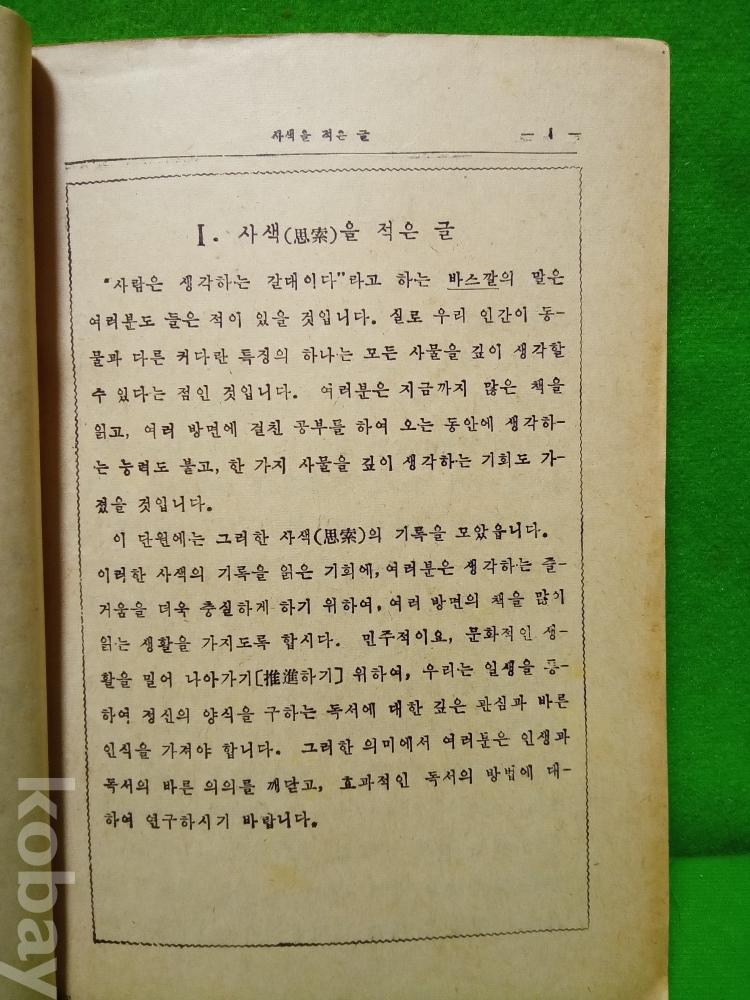 사색을 적은 글 — 1 —
I. 사색(思索)을 적은 글
"사람은 생각하는 갈대이다"라고 하는 바스깔의 말은
여러분도 들은 적이 있을 것입니다. 실로 우리 인간이 동-
물과 다른 커다란 특징의 하나는 모든 사물을 깊이 생각할
수 있다는 점인 것입니다. 여러분은 지금까지 많은 책을
읽고, 여러 방면에 걸친 공부를 하여 오는 동안에 생각하-
는 능력도 붙고, 한 가지 사물을 깊이 생각하는 기회도 가-
졌을 것입니다.
이 단원에는 그러한 사색(思索)의 기록을 모았읍니다.
이러한 사색의 기록을 읽은 기회에, 여러분은 생각하는 즐-
거움을 더욱 충실하게 하기 위하여, 여러 방면의 책을 많이
읽는 생활을 가지도록 합시다. 민주적이요, 문화적인 생-
활을 밀어 나아가기[推進하기] 위하여, 우리는 일생을 통-
하여 정신의 양식을 구하는 독서에 대한 깊은 관심과 바른
인식을 가져야 합니다. 그러한 의미에서 여러분은 인생과
독서의 바른 의의를 깨닫고, 효과적인 독서의 방법에 대-
하여 연구하시기 바랍니다.
kobay